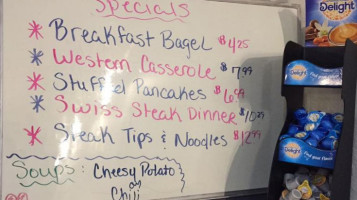 Specials
* Breakfast Bagel $4.25
* Western Casserole $7.99
* Stuffed Pancakes $6.99
* Swiss Steak Dinner $10.29
* Steak Tips & Noodles $12.99
Soups: Cheesy Potato
or
Chili
Delight
Delight
Delight